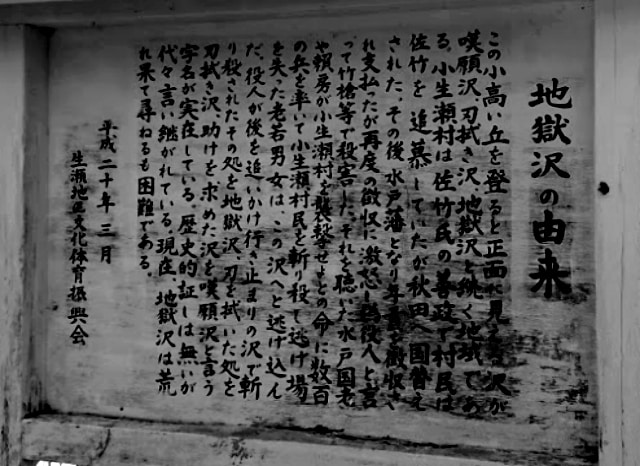 地獄沢の由来
この小高い丘を登ると正面に見える沢が
嘆願沢、刃拭き沢、地獄沢と続く地域であ
る。小生瀬村は佐竹氏の善政で村民は
佐竹を追慕していたが秋田へ国替え
された。その後水戸藩となり年貢を徴収さ
れ支払ったが再度の徴収に激怒し役人と言
って竹槍等で殺害した。それを聴いた水戸国老
や頼房が小生瀬村を襲撃せよとの命に数百
の兵を率いて小生瀬村民を斬り殺て逃げ場
を失った老若男女は、この沢へと逃げ込ん
だ。役人が後を追いかけ行き止まりの沢で斬
り殺されたその処を地獄沢、刃を拭いた処を
刃拭き沢、助けを求めた沢を嘆願沢と言う
字名が実在している。歴史的証しは無いが
代々言い継がれている。現在、地獄沢は荒
れ果て尋ねるも困難である。
平成二十年三月
生瀬地区文化体育振興会